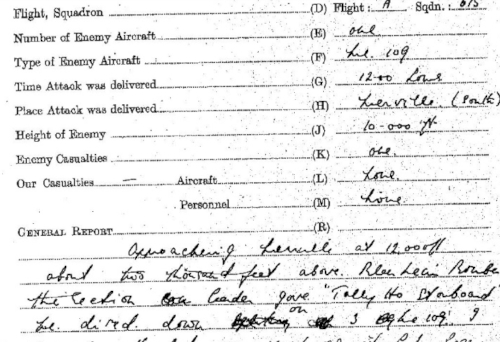 Flight, Squadron (D) Flight: A Sqdn.: 615
Number of Enemy Aircraft (E) one
Type of Enemy Aircraft (F) He. 109
Time Attack was delivered (G) 1200 hours
Place Attack was delivered (H) Merville. (South)
Height of Enemy (J) 10-000 ft
Enemy Casualties (K) one.
Our Casualties — Aircraft (L) None
Personnel (M) None
GENERAL REPORT (R)
Approaching Merville at 12000ft
about two thousand feet above. Blenheim Bomber
the section leader gave "Tally Ho Starboard
he. dived down on 3 He 109, I